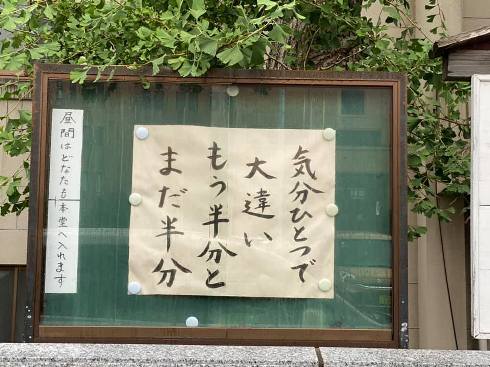 気分ひとつで
大違い
もう半分と
まだ半分
昼間はどなたも本堂へ入れます